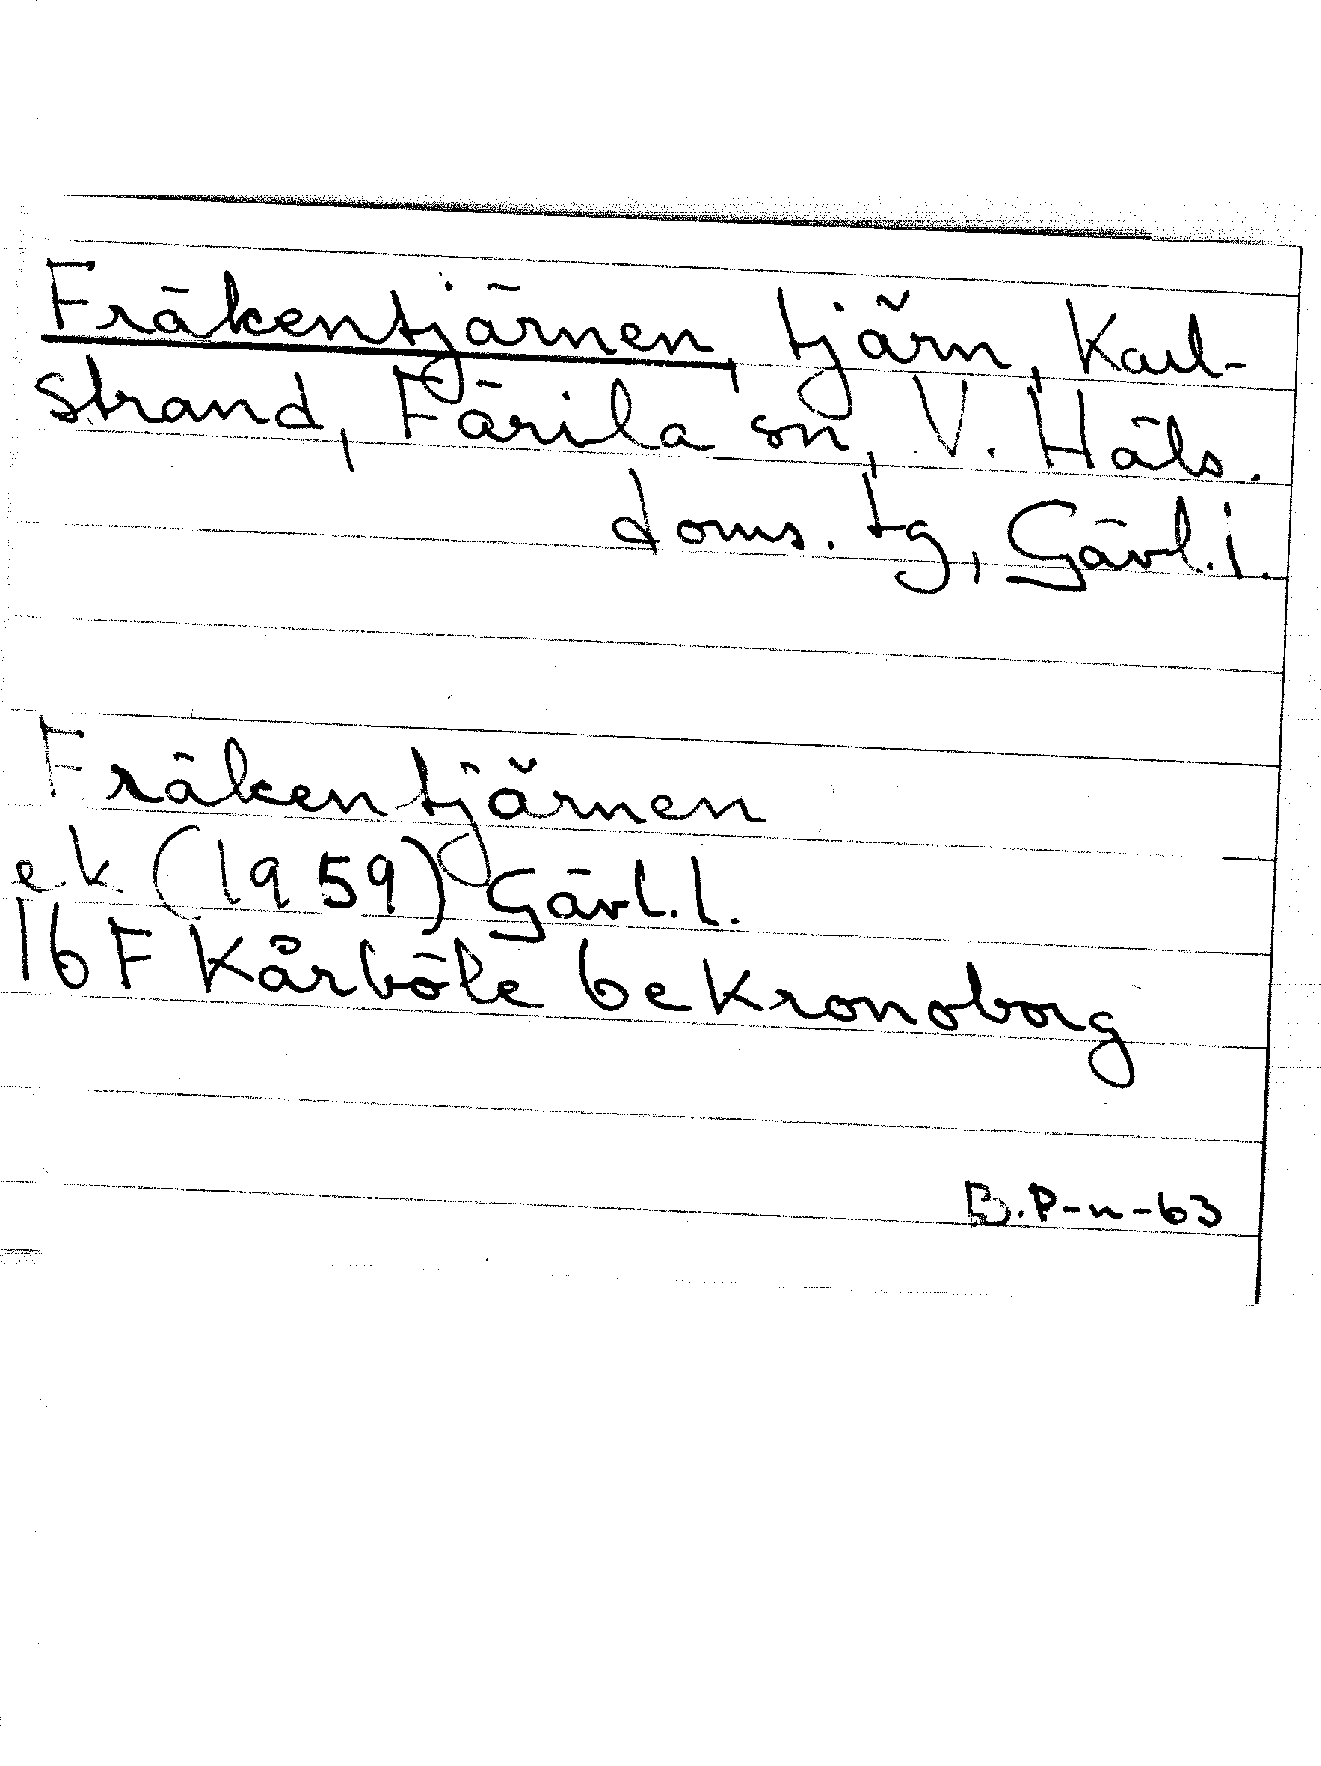 Fräkentjärnen, tjärn, Karl-
strand, Färila sn, V. Häls.
doms. tg, Gävl. l.
Fräkentjärnen
ek (1959) Gävl. l.
16 F Kårböle 6e Kronoborg
B.P-n-63